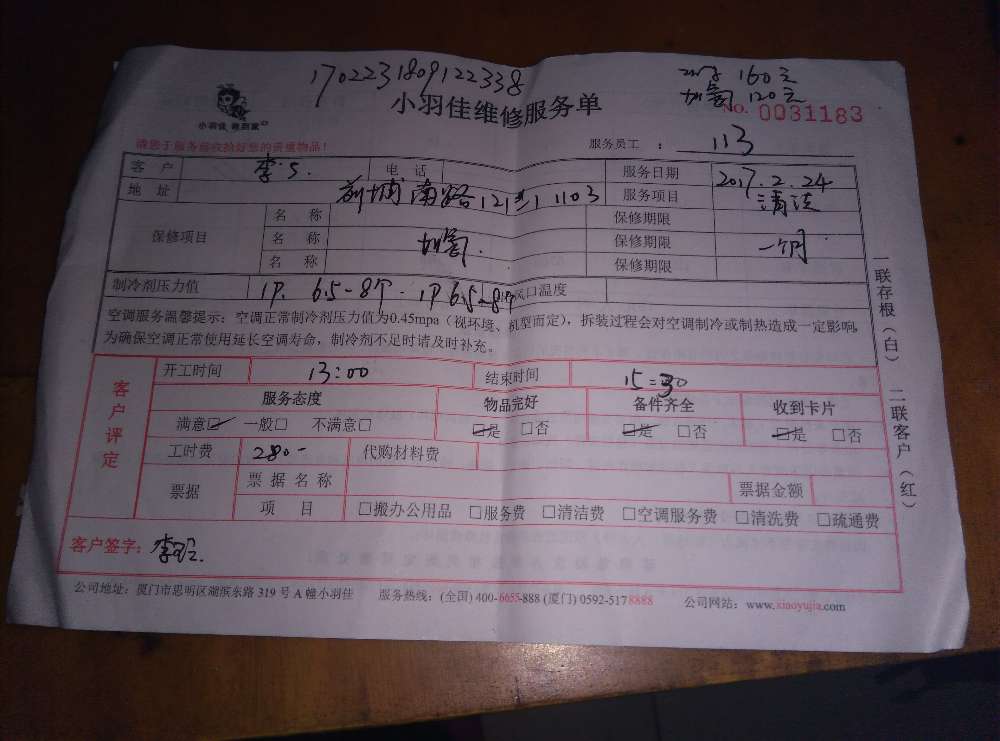 1702231809122338
160元
加氟 120元
小羽佳维修服务单
NO. 0031183
小羽佳 得到家
请您于服务前收拾好您的贵重物品!
服务员工 : 113
客 户 李.S. 电 话 服务日期 2017.2.24
地 址 前埔南路121#1 1103 服务项目 清洁
保修项目 名 称 保修期限
名 称 加氟. 保修期限 一个月
名 称 保修期限
制冷剂压力值 1P. 6.5-8个. 1P 6.5-8个 风口温度
空调服务温馨提示:空调正常制冷剂压力值为0.45mpa(视环境、机型而定),拆装过程会对空调制冷或制热造成一定影响,
为确保空调正常使用延长空调寿命,制冷剂不足时请及时补充。
客户评定
开工时间 13:00 结束时间 15:30
服务态度 物品完好 备件齐全 收到卡片
满意☑ 一般□ 不满意□ ☑是 □否 ☑是 □否 ☑是 □否
工时费 280- 代购材料费
票据 票据名称 票据金额
项 目 □搬办公用品 □服务费 □清洁费 □空调服务费 □清洗费 □疏通费
客户签字: 李
公司地址:厦门市思明区湖滨东路 319 号 A 幢小羽佳 服务热线:(全国) 400-6655-888 (厦门) 0592-5178888 公司网站:www.xiaoyujia.com
一联存根(白) 二联客户(红)